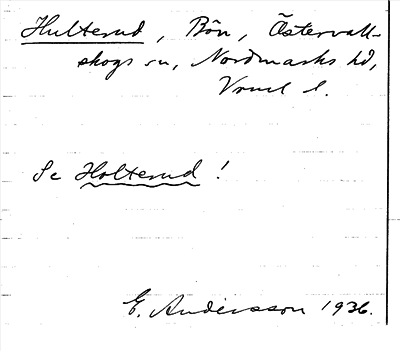 Hulterud, Bön, Östervall-
skogs sn, Nordmarks hd,
Vrml l.
Se Holterud!
E. Andersson 1936.